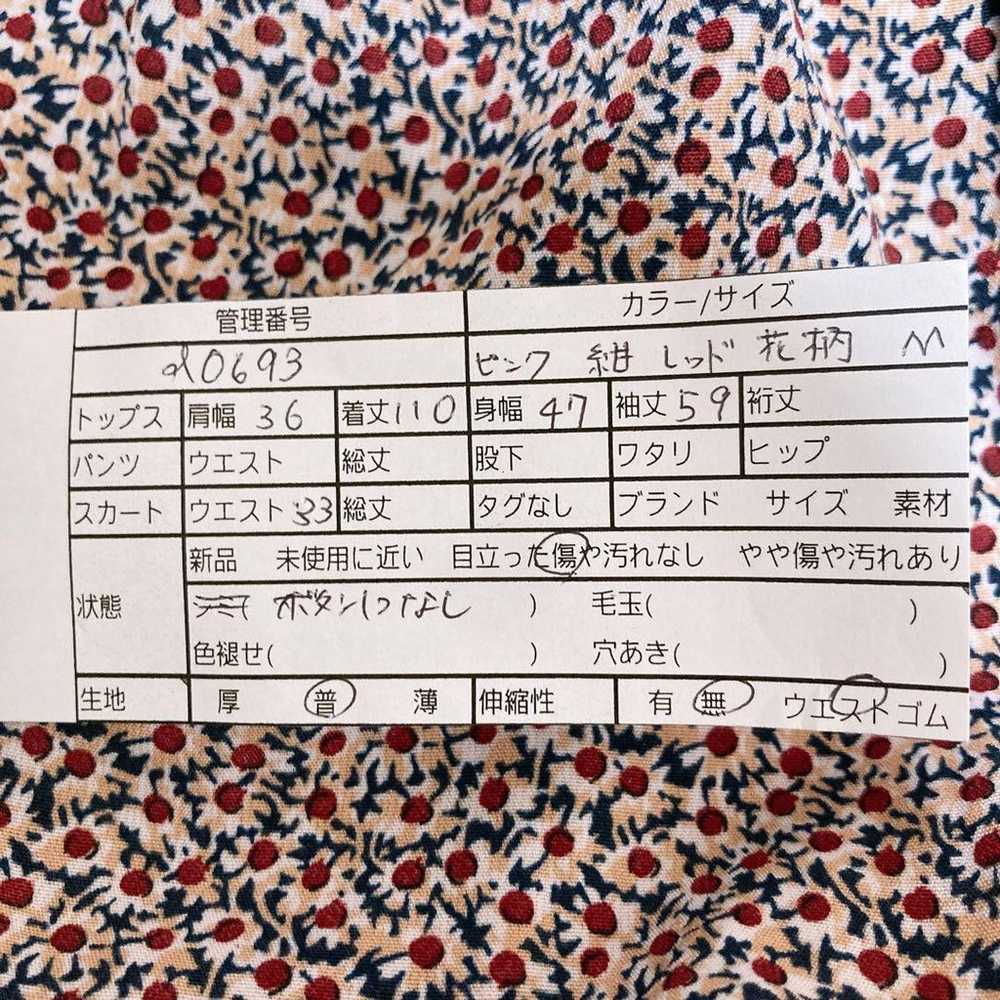 管理番号 カラー/サイズ
d0693 ピンク 紺 レッド 花柄 M
トップス 肩幅 36 着丈 110 身幅 47 袖丈 59 裄丈
パンツ ウエスト 総丈 股下 ワタリ ヒップ
スカート ウエスト 33 総丈 タグなし ブランド サイズ 素材
新品 未使用に近い 目立った傷や汚れなし やや傷や汚れあり
状態 ( ボタン1つなし ) 毛玉( )
色褪せ( ) 穴あき( )
生地 厚 普 薄 伸縮性 有 無 ウエストゴム